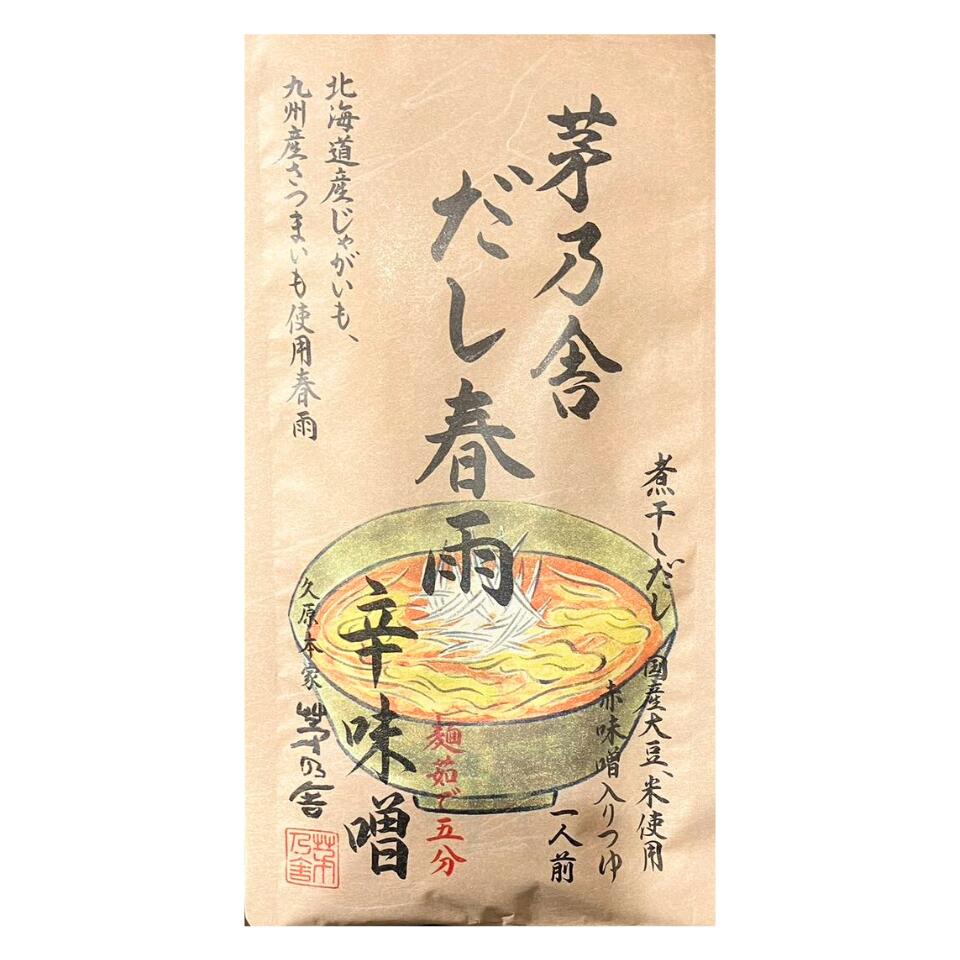 茅乃舎
だし春雨
辛味噌
北海道産じゃがいも、
九州産さつまいも使用春雨
煮干しだし
国産大豆、米使用
赤味噌入りつゆ
一人前
麺茹で五分
久原本家
茅乃舎
茅乃舎